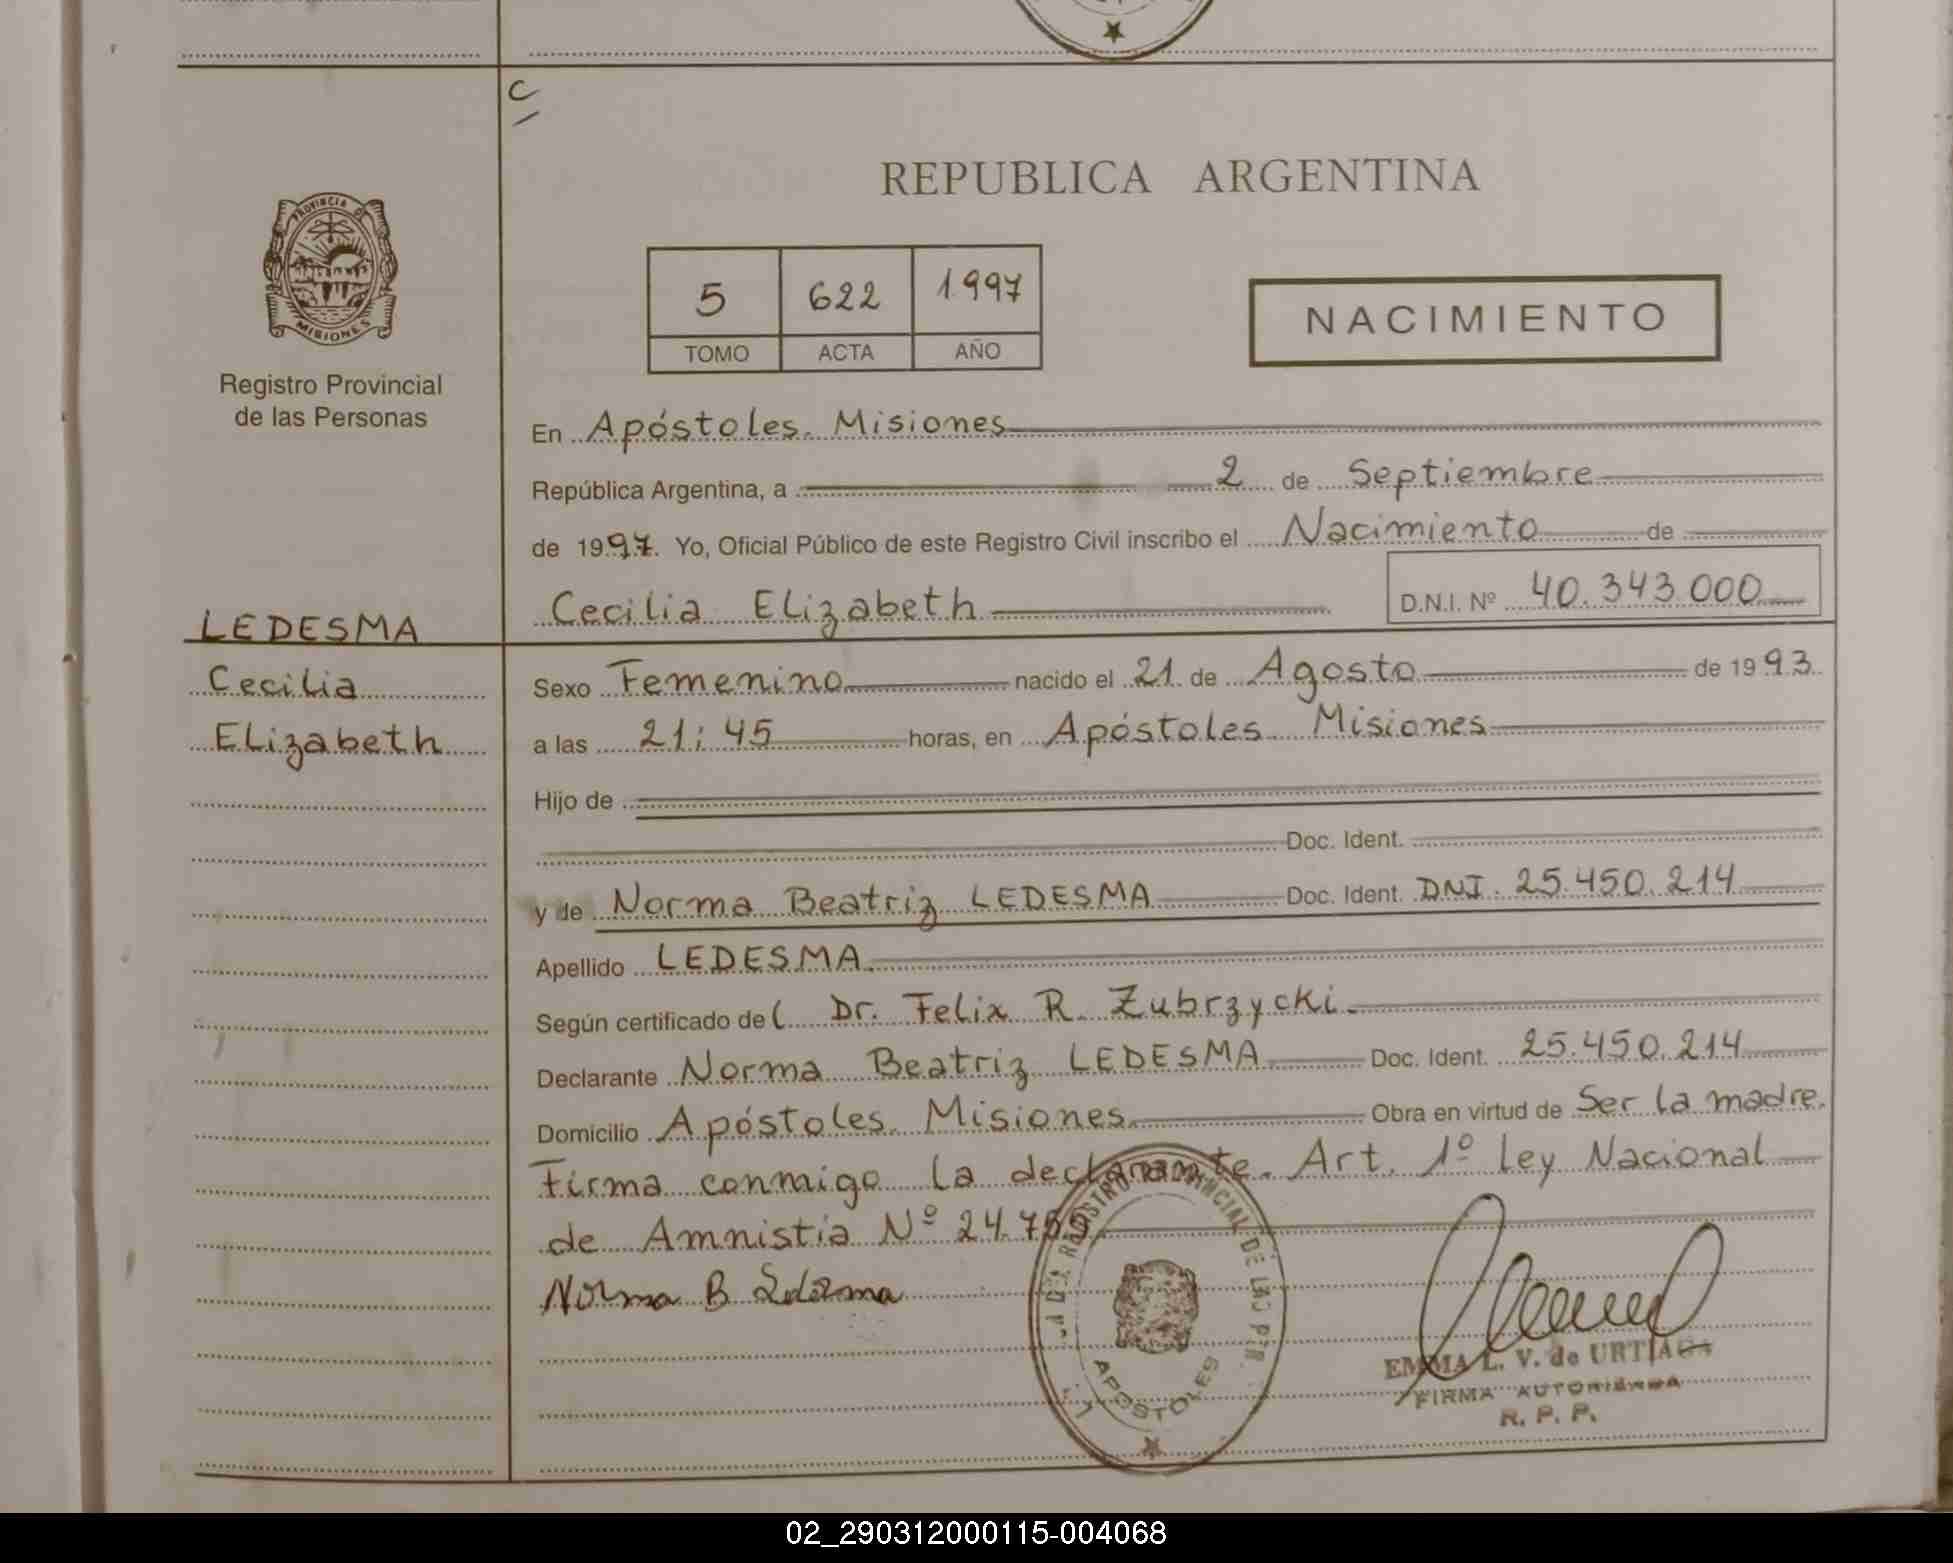 C
REPUBLICA ARGENTINA
PROVINCIA DE
MISIONES
Registro Provincial
de las Personas
5 622 1997
TOMO ACTA AÑO
NACIMIENTO
En Apóstoles. Misiones
República Argentina, a 2 de Septiembre
de 1997. Yo, Oficial Público de este Registro Civil inscribo el Nacimiento de
Cecilia Elizabeth D.N.I. Nº 40.343.000
LEDESMA
Cecilia
Elizabeth
Sexo Femenino nacido el 21 de Agosto de 1993
a las 21:45 horas, en Apóstoles Misiones
Hijo de
Doc. Ident.
y de Norma Beatriz LEDESMA Doc. Ident. DNI. 25.450.214
Apellido LEDESMA
Según certificado de Dr. Felix R. Zubrzycki
Declarante Norma Beatriz LEDESMA Doc. Ident. 25.450.214
Domicilio Apóstoles. Misiones. Obra en virtud de Ser la madre.
Firma conmigo la declarante. Art. 1º Ley Nacional
de Amnistía Nº 24.755
Norma B Ledesma
APOSTOLES
EMMA L. V. de URTIAGA
FIRMA AUTORIZADA
R. P. P.
02_290312000115-004068